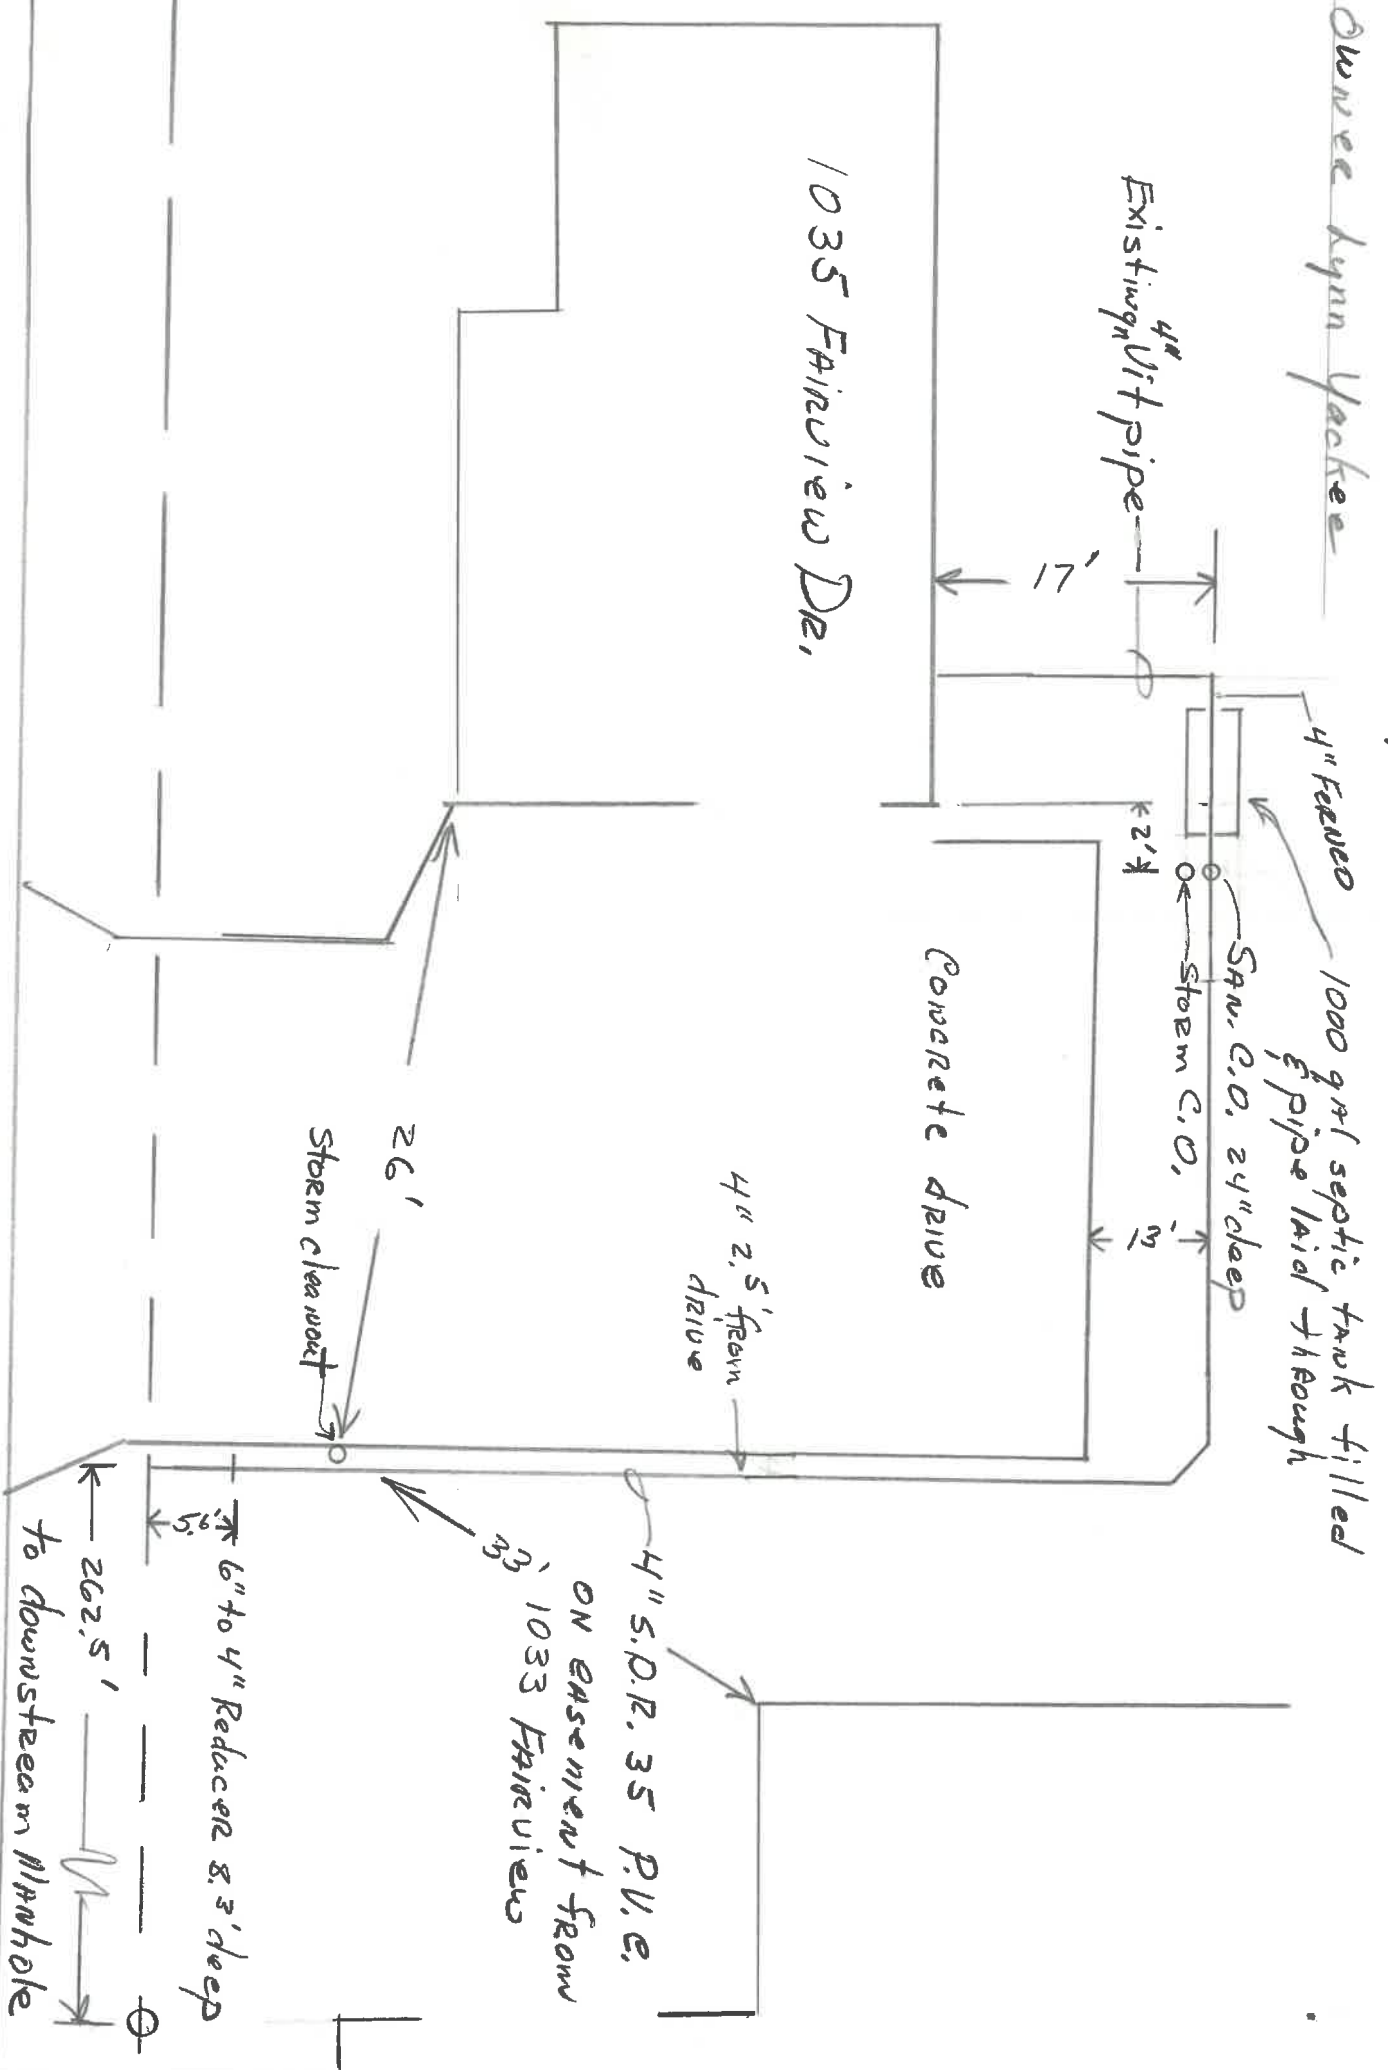 Owner Lynn Yackee
4" FERNCO
1000 gal septic tank filled
& pipe laid through
Existing 4" Vit pipe
17'
SAN. C.O. 24" deep
Storm C.O.
2'
13'
1035 FAIRVIEW DR.
Concrete drive
4" 2.5' from
drive
26'
Storm cleanout
4" S.D.R. 35 P.V.C.
ON EASEMENT from
33' 1033 FAIRVIEW
5.6'
6" to 4" Reducer 8.3' deep
262.5'
to downstream MANhole